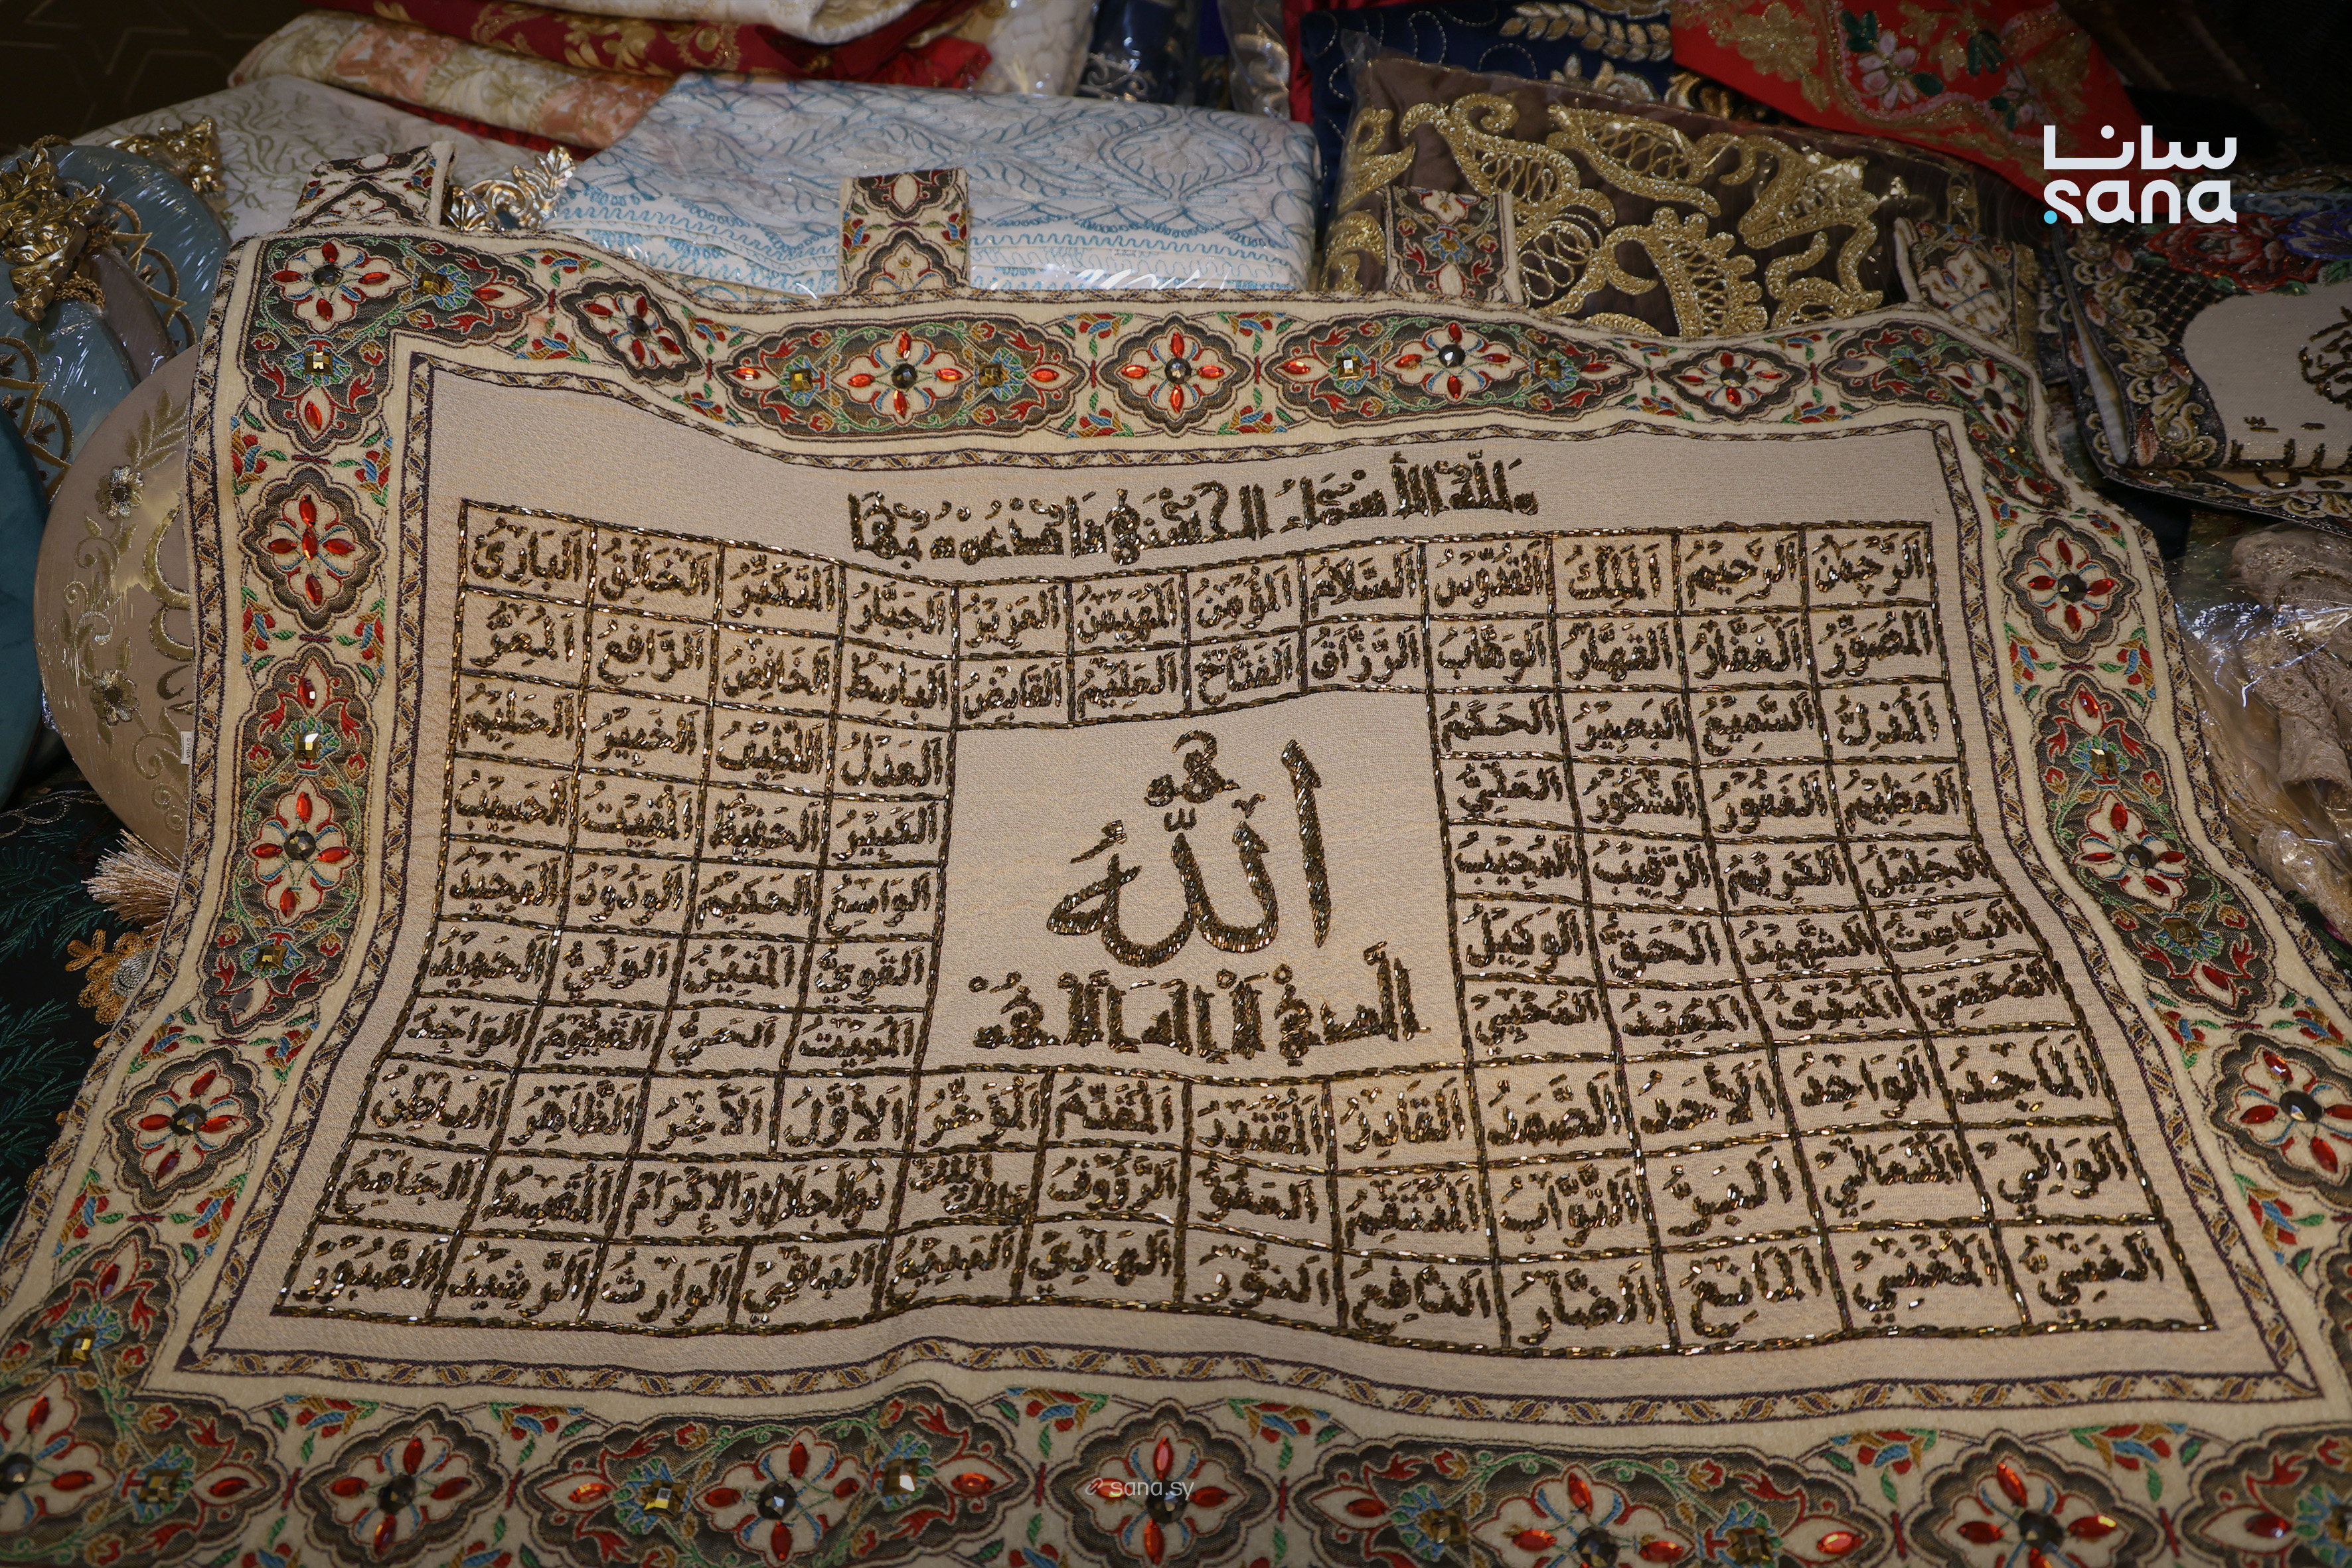 سانا
sana
وَلِلَّهِ الأَسْمَاءُ الْحُسْنَى فَادْعُوهُ بِهَا
اَلرَّحْمٰنُ اَلرَّحِيمُ اَلْمَلِكُ اَلْقُدُّوسُ اَلسَّلَامُ اَلْمُؤْمِنُ اَلْمُهَيْمِنُ اَلْعَزِيزُ اَلْجَبَّارُ اَلْمُتَكَبِّرُ اَلْخَالِقُ اَلْبَارِئُ
اَلْمُصَوِّرُ اَلْغَفَّارُ اَلْقَهَّارُ اَلْوَهَّابُ اَلرَّزَّاقُ اَلْفَتَّاحُ اَلْعَلِيمُ اَلْقَابِضُ اَلْبَاسِطُ اَلْخَافِضُ اَلرَّافِعُ اَلْمُعِزُّ
اَلْمُذِلُّ اَلسَّمِيعُ اَلْبَصِيرُ اَلْحَكَمُ اَلْعَدْلُ اَللَّطِيفُ اَلْخَبِيرُ اَلْحَلِيمُ
اَلْعَظِيمُ اَلْغَفُورُ اَلشَّكُورُ اَلْعَلِيُّ اَلْكَبِيرُ اَلْحَفِيظُ اَلْمُقِيتُ اَلْحَسِيبُ
اَلْجَلِيلُ اَلْكَرِيمُ اَلرَّقِيبُ اَلْمُجِيبُ اَلْوَاسِعُ اَلْحَكِيمُ اَلْوَدُودُ اَلْمَجِيدُ
اَلْبَاعِثُ اَلشَّهِيدُ اَلْحَقُّ اَلْوَكِيلُ اَلْقَوِيُّ اَلْمَتِينُ اَلْوَلِيُّ اَلْحَمِيدُ
اَلْمُحْصِي اَلْمُبْدِئُ اَلْمُعِيدُ اَلْمُحْيِي اَلْمُمِيتُ اَلْحَيُّ اَلْقَيُّومُ اَلْوَاجِدُ
هُوَ
اَللّٰهُ
الَّذِي لَا إِلٰهَ إِلَّا هُوَ
اَلْمَاجِدُ اَلْوَاحِدُ اَلْأَحَدُ اَلصَّمَدُ اَلْقَادِرُ اَلْمُقْتَدِرُ اَلْمُقَدِّمُ اَلْمُؤَخِّرُ اَلْأَوَّلُ اَلْآخِرُ اَلظَّاهِرُ اَلْبَاطِنُ
اَلْوَالِي اَلْمُتَعَالِي اَلْبَرُّ اَلتَّوَّابُ اَلْمُنْتَقِمُ اَلْعَفُوُّ اَلرَّؤُوفُ مَالِكُ الْمُلْكِ ذُو الْجَلَالِ وَالْإِكْرَامِ اَلْمُقْسِطُ اَلْجَامِعُ
اَلْغَنِيُّ اَلْمُغْنِي اَلْمَانِعُ اَلضَّارُّ اَلنَّافِعُ اَلنُّورُ اَلْهَادِي اَلْبَدِيعُ اَلْبَاقِي اَلْوَارِثُ اَلرَّشِيدُ اَلصَّبُورُ
sana.sy